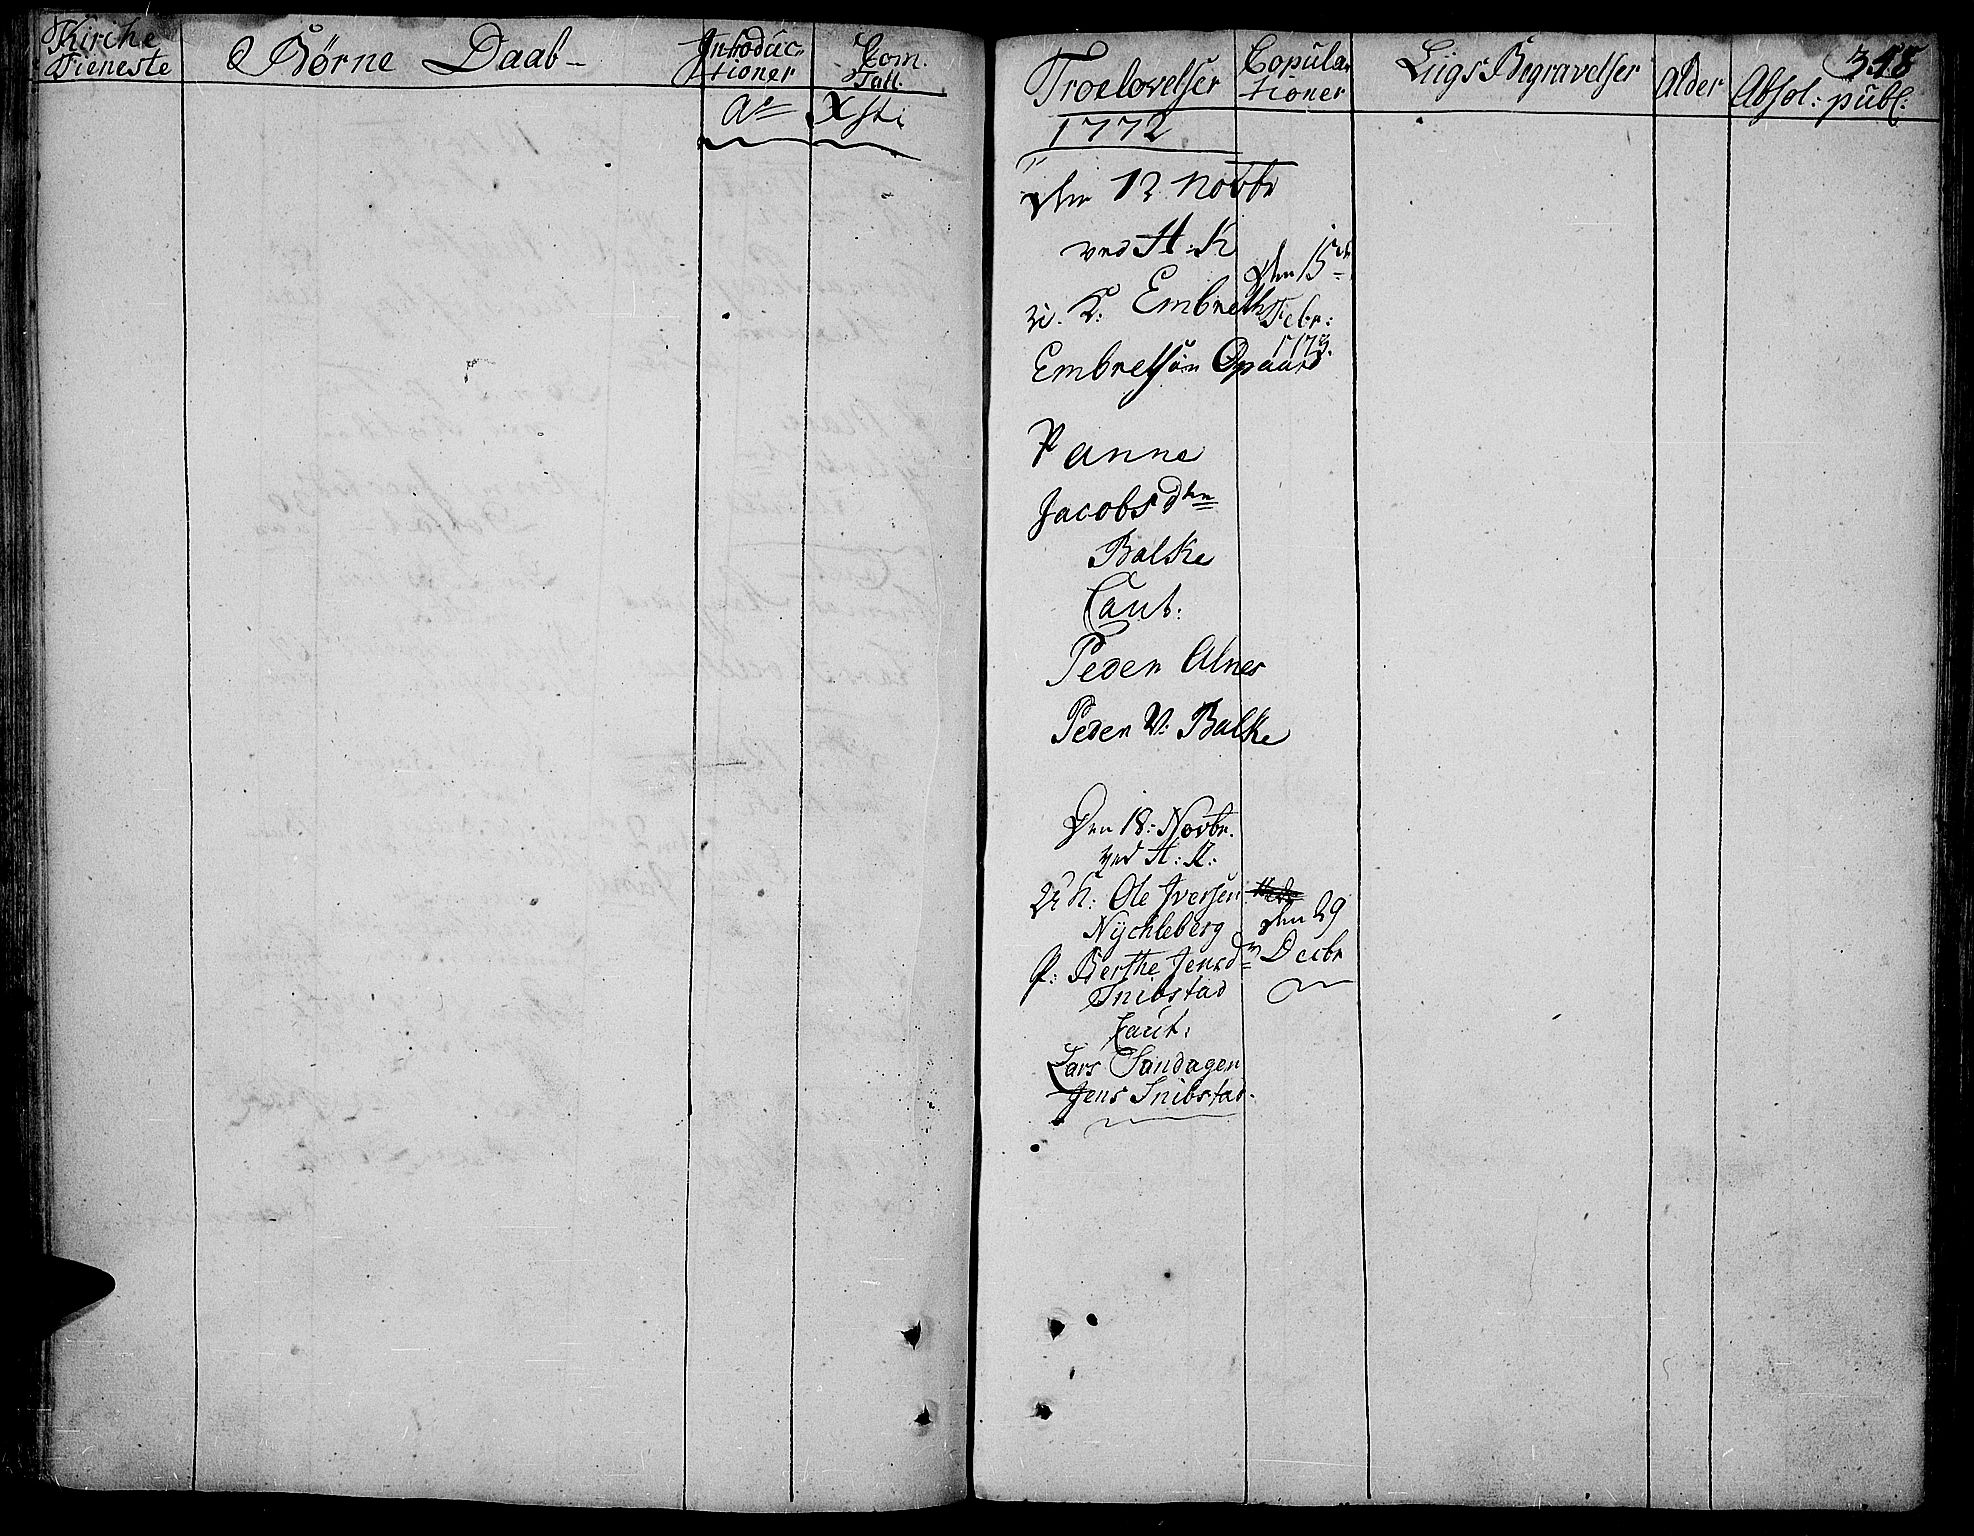 Kirche
Tieneste
Børne Daab
Introduc
tioner
Com.
Tall.
Ao Xsti
Troelovelser
Copula
tioner
Liigs Begravelser
Alder
Absol: publ:
1772
den 13 Novbr
ved H. K
Embreth
Embretsøn Opaard
den 15de
Febr:
1773.
P anne
Jacobsdtr
Balke
Caut:
Peder Alnes
Peder V: Balke
Den 18: Novbr.
ved H: K:
U K: Ole Iversen
Nychleberg
den 29
Decbr
P: Berthe Jensdr
Snibstad
Caut:
Lars Sandagen
Jens Snibstad